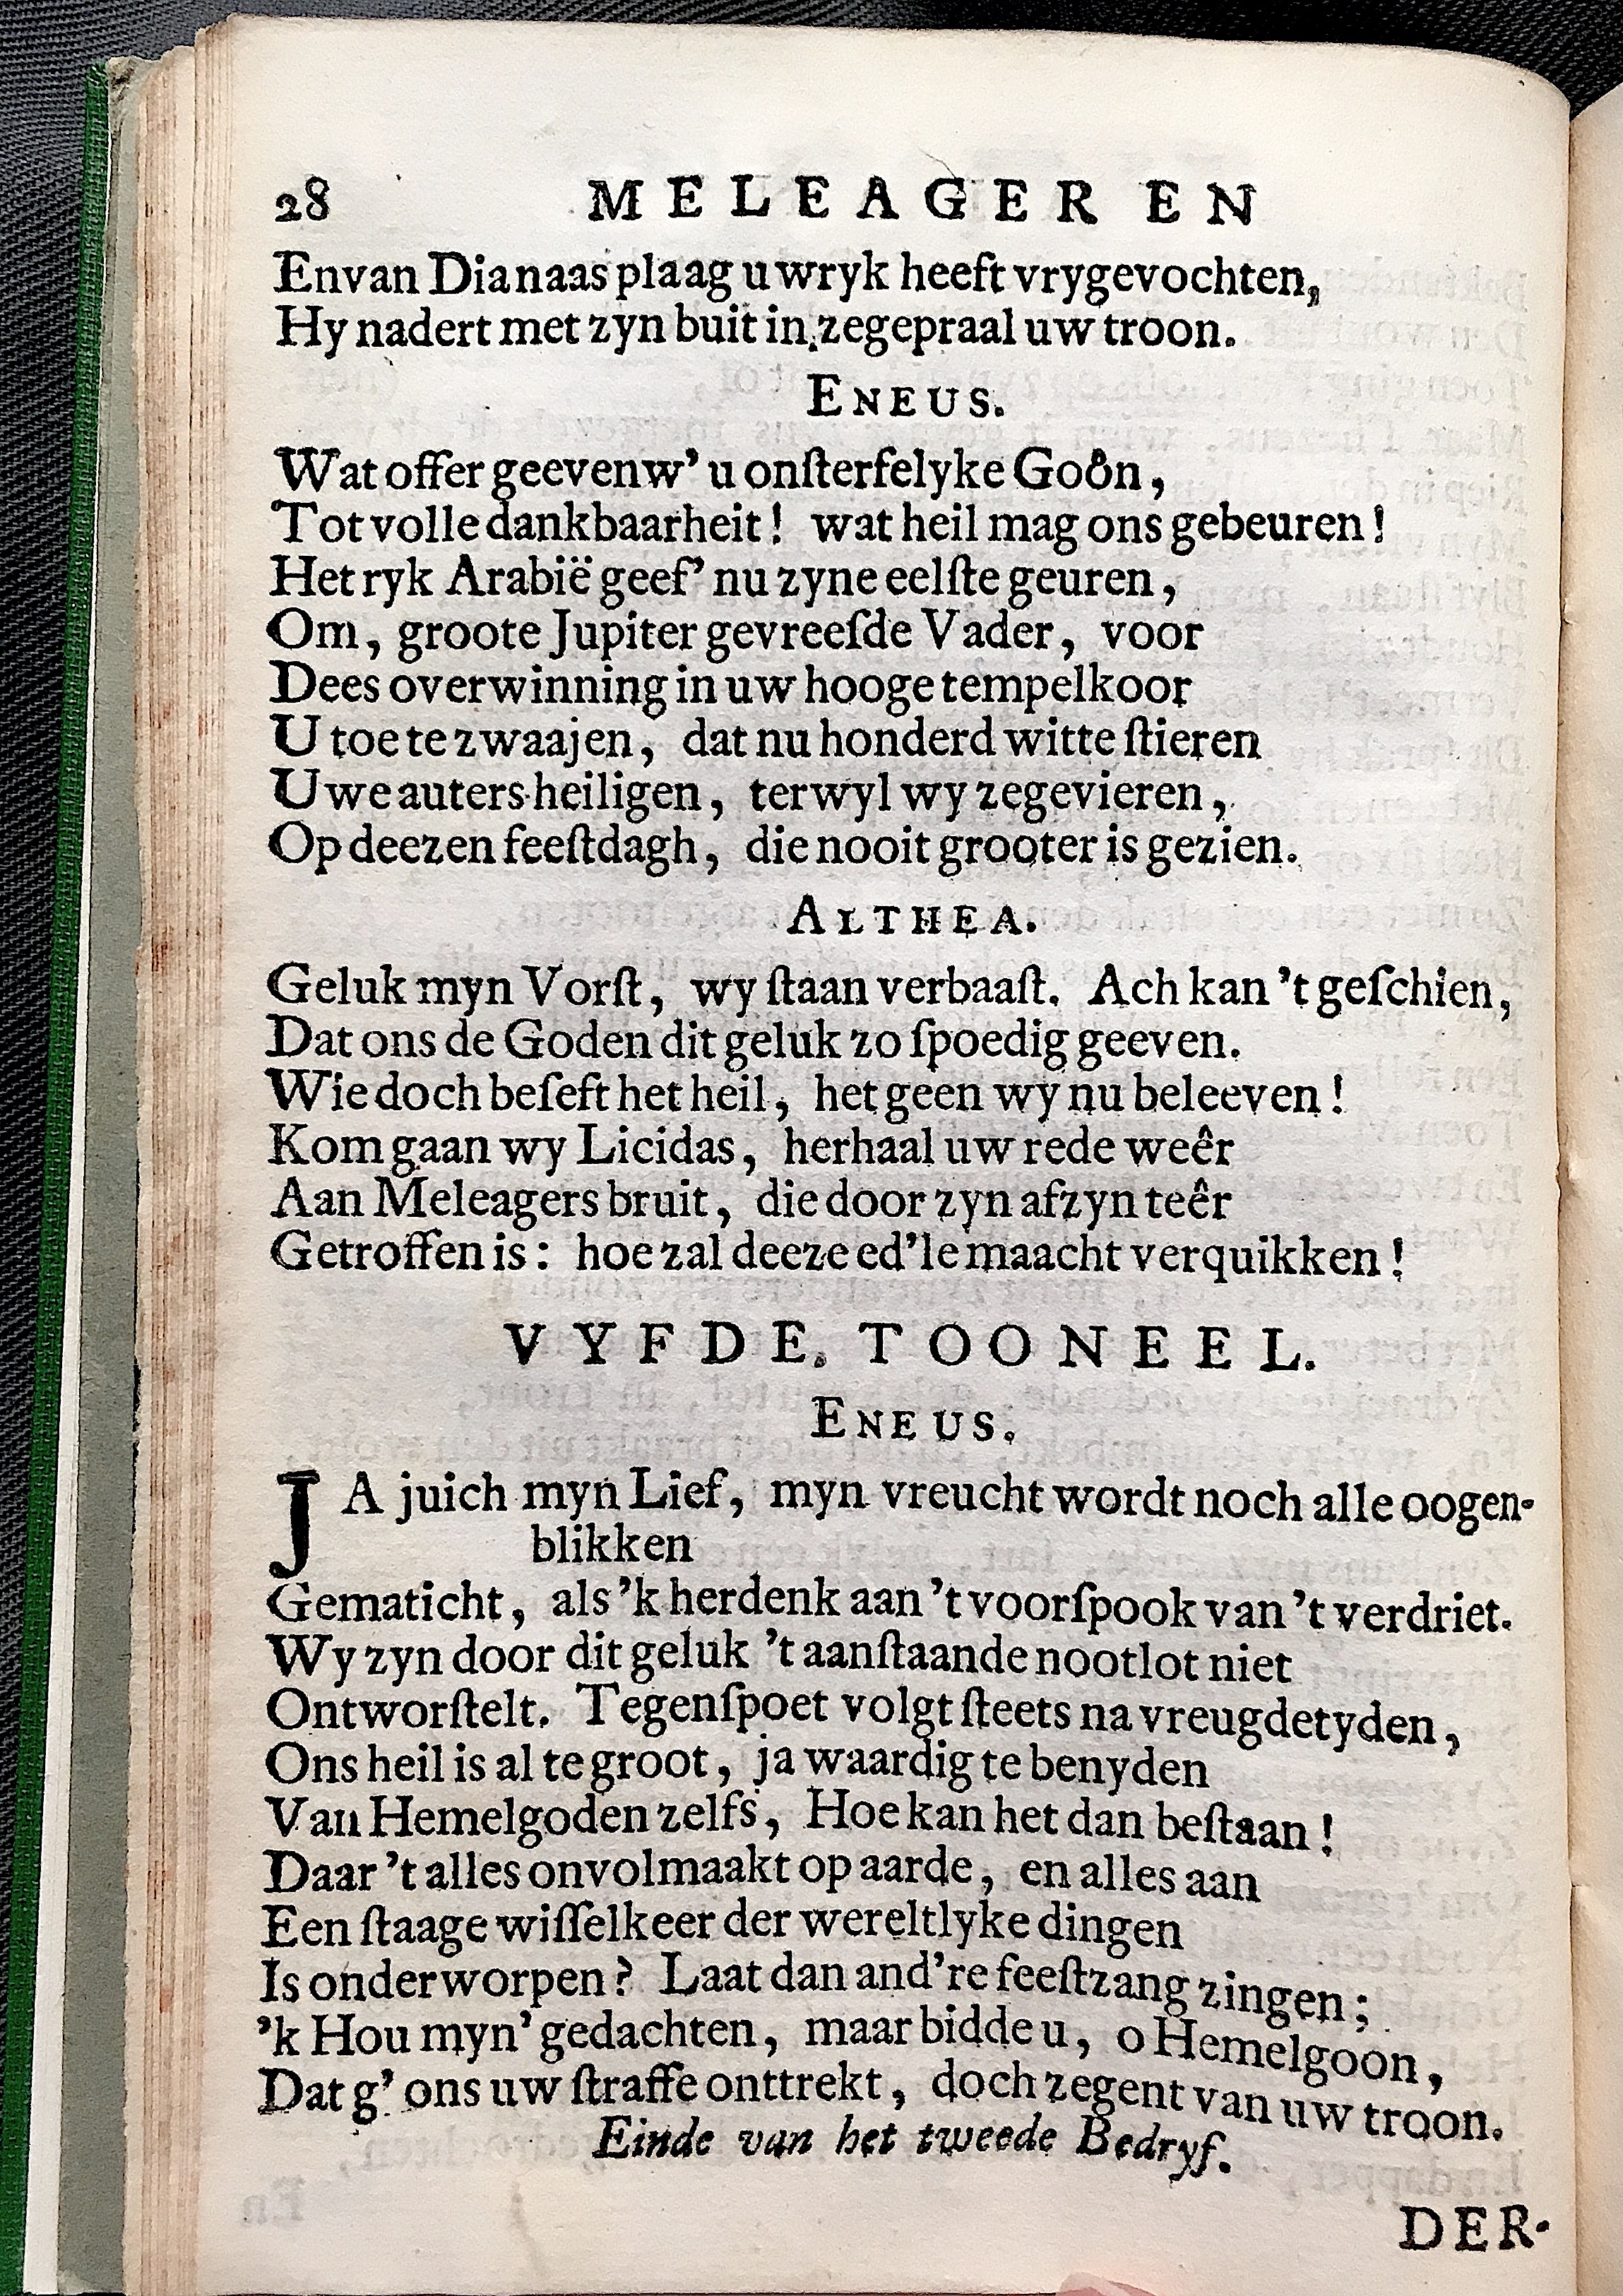 28 MELEAGER EN
En van Dianaas plaag uw ryk heeft vrygevochten,
Hy nadert met zyn buit in zegepraal uw troon.
ENEUS.
Wat offer geeven w' u onſterfelyke Goôn,
Tot volle dankbaarheit! wat heil mag ons gebeuren!
Het ryk Arabië geef' nu zyne eelſte geuren,
Om, groote Jupiter gevreeſde Vader, voor
Dees overwinning in uw hooge tempelkoor
U toe te zwaajen, dat nu honderd witte ſtieren
Uwe auters heiligen, terwyl wy zegevieren,
Op deezen feeſtdagh, die nooit grooter is gezien.
ALTHEA.
Geluk myn Vorſt, wy ſtaan verbaaſt. Ach kan 't geſchien,
Dat ons de Goden dit geluk zo ſpoedig geeven.
Wie doch beſeft het heil, het geen wy nu beleeven!
Kom gaan wy Licidas, herhaal uw rede weêr
Aan Meleagers bruit, die door zyn afzyn teêr
Getroffen is: hoe zal deeze ed'le maacht verquikken!
VYFDE. TOONEEL.
ENEUS.
JA juich myn Lief, myn vreucht wordt noch alle oogen-
blikken
Gematicht, als 'k herdenk aan 't voorſpook van 't verdriet.
Wy zyn door dit geluk 't aanſtaande nootlot niet
Ontworſtelt. Tegenſpoet volgt ſteets na vreugdetyden,
Ons heil is al te groot, ja waardig te benyden
Van Hemelgoden zelfs, Hoe kan het dan beſtaan!
Daar 't alles onvolmaakt op aarde, en alles aan
Een ſtaage wiſſelkeer der wereltlyke dingen
Is onderworpen? Laat dan and're feeſtzang zingen;
'k Hou myn' gedachten, maar bidde u, o Hemelgoon,
Dat g' ons uw ſtraffe onttrekt, doch zegent van uw troon.
Einde van het tweede Bedryf.
DER-